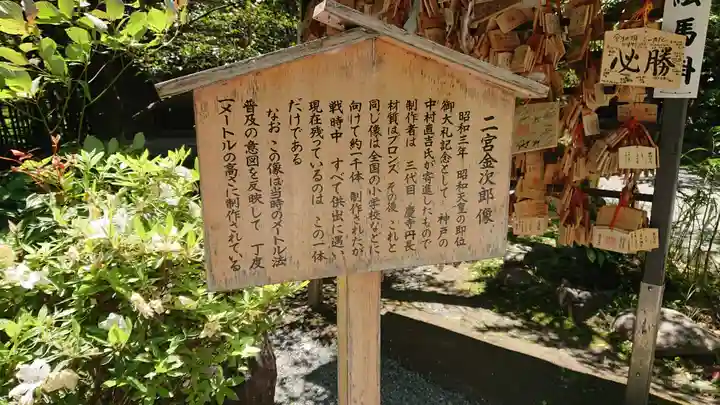 二宮金次郎像
昭和三年 昭和天皇の即位
御大礼記念として 神戸の
中村直吉氏が寄進したもので
制作者は 三代目 慶寺丹長
材質はブロンズ その後 これと
同じ像は全国の小学校などに
向けて約一千体 制作されたが
戦時中 すべて供出に遇い
現在残っているのは この一体
だけである
なお この像は当時のメートル法
普及の意図を反映して 丁度
一メートルの高さに制作されている
絵馬掛
必勝